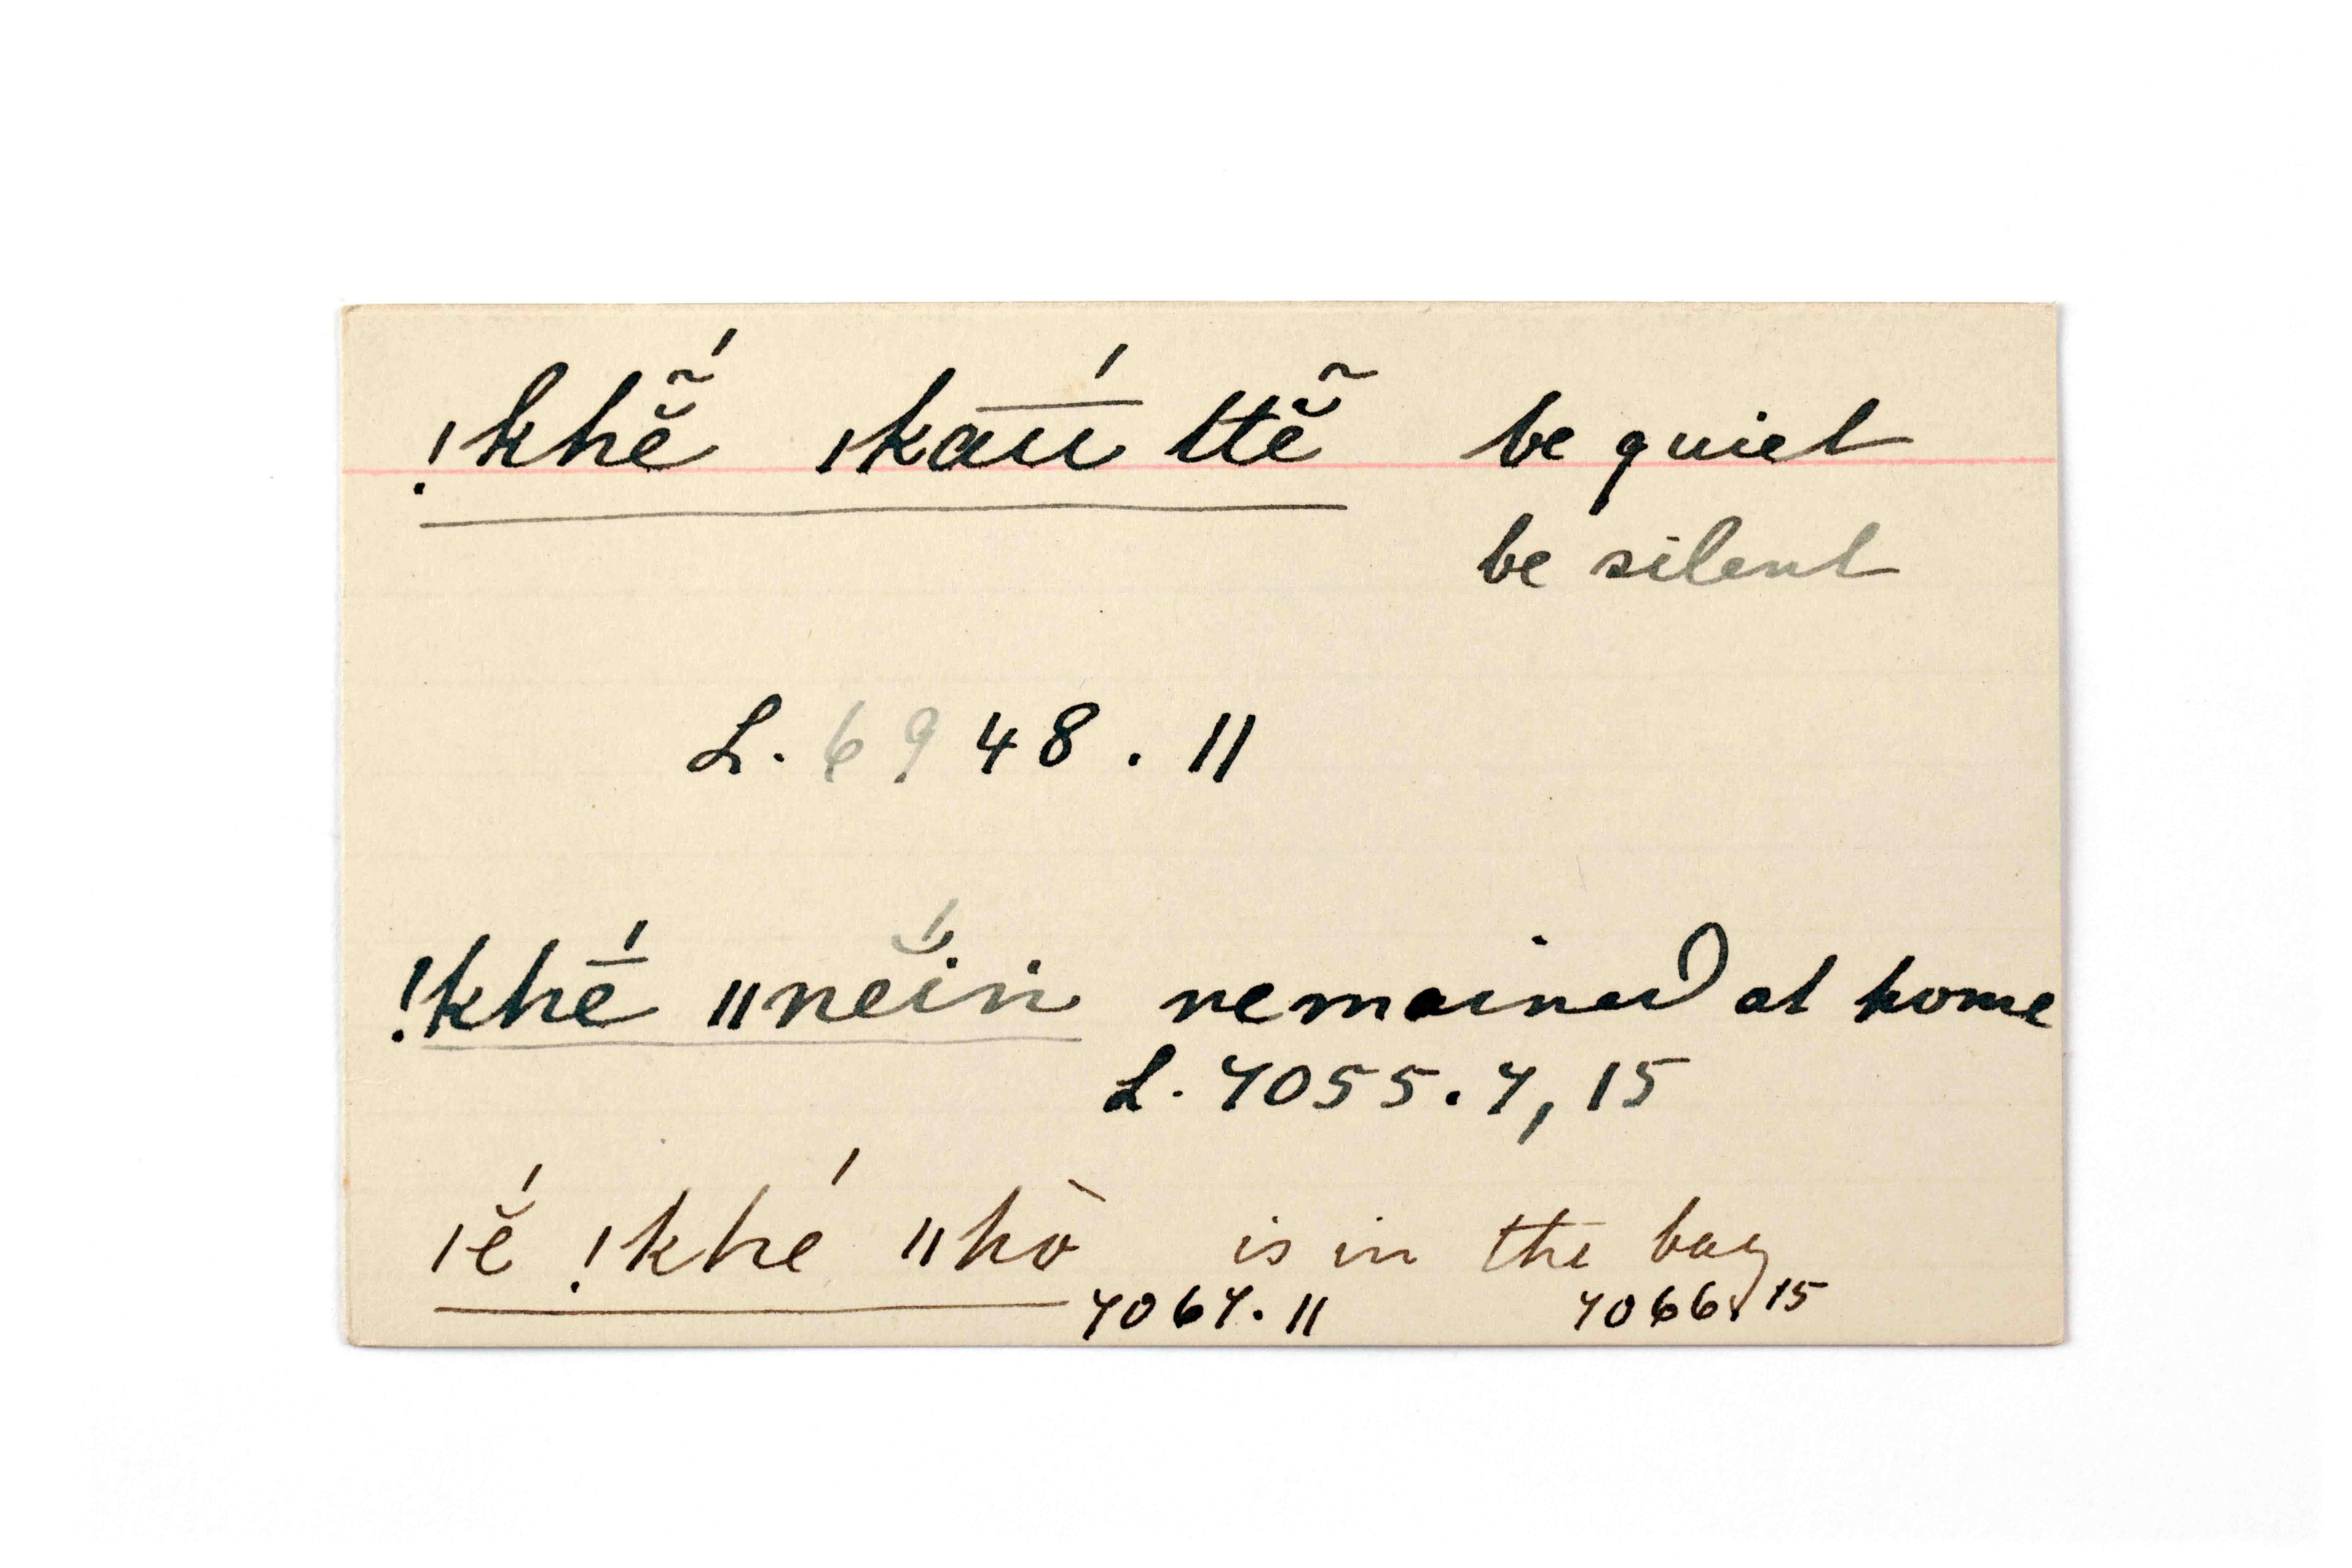 !khẽ̆́ ǀkaū́ ttẽ̆ be quiet
be silent
L. 6948. 11
!khḗ ǁnĕ́in remained at home
L. 7055. 7, 15
ǀĕ́ !khé ǁhò is in the bag
7067. 11 7066. 15